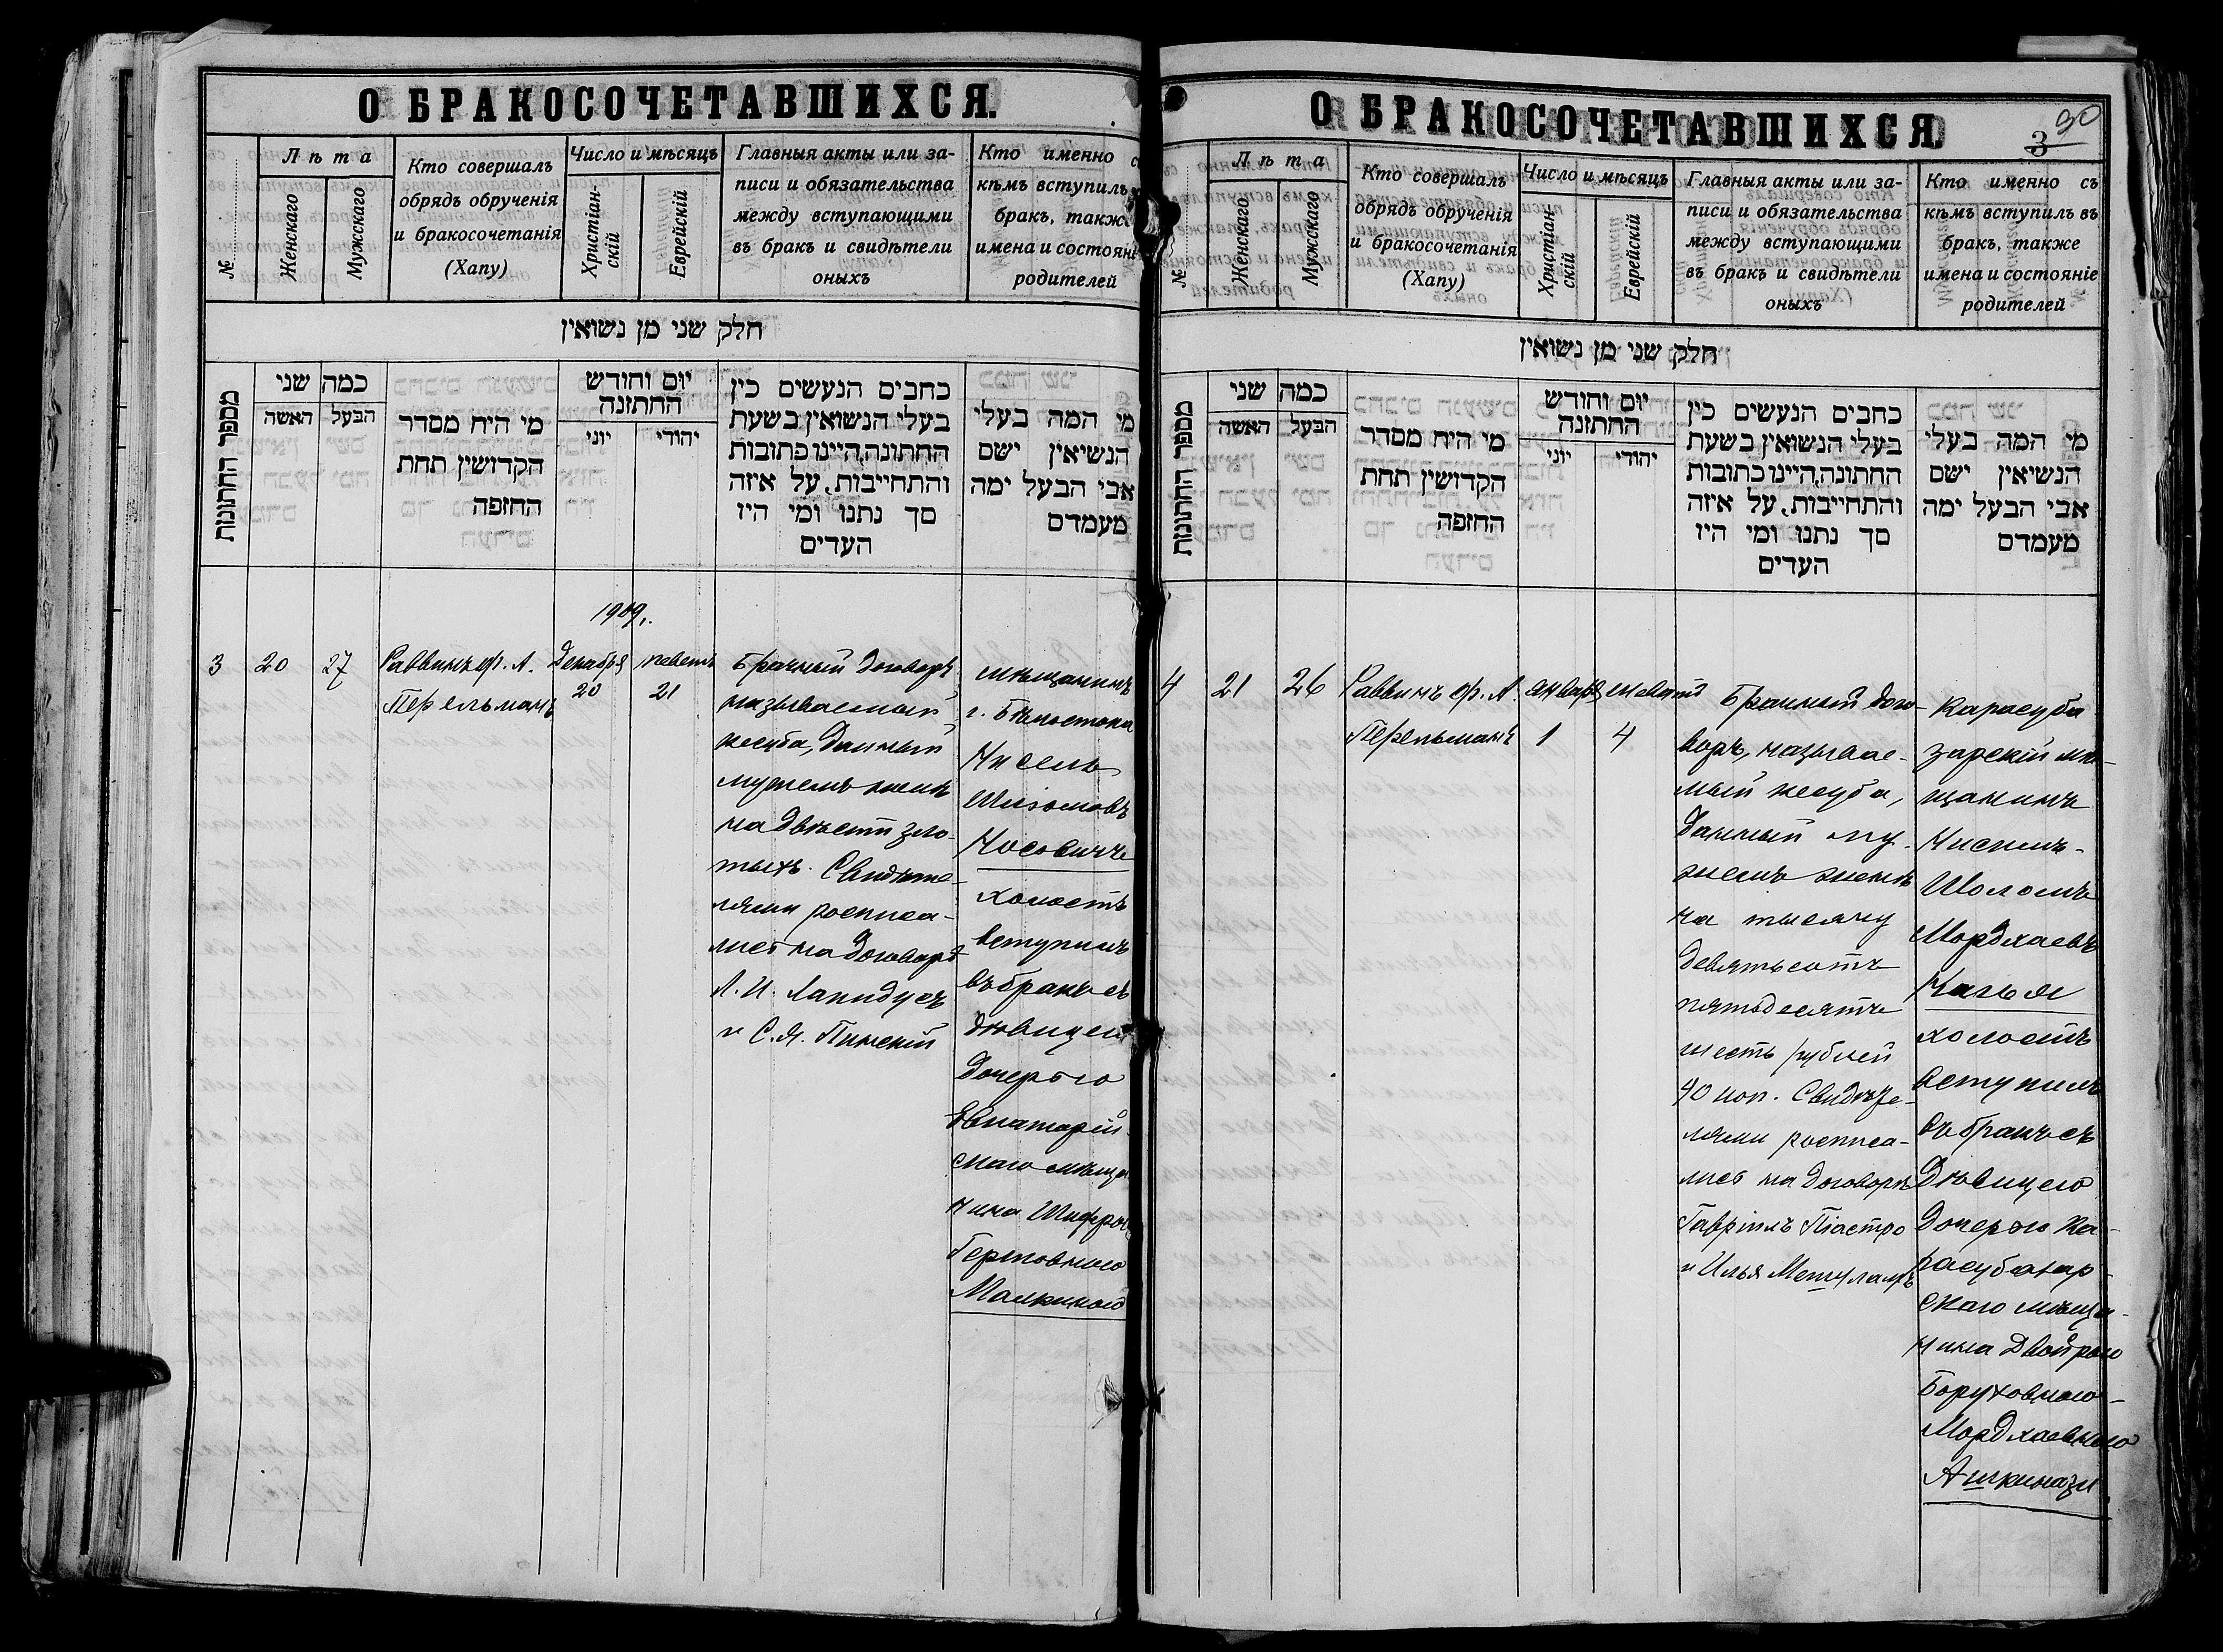 О БРАКОСОЧЕТАВШИХСЯ.
№
Лѣта
Женскаго
Мужскаго
Кто совершалъ
обрядъ обрученія
и бракосочетанія
(Хапу)
Число и мѣсяцъ
Христіан-
скій
Еврейскій
Главныя акты или за-
писи и обязательства
между вступающими
въ бракъ и свидѣтели
оныхъ
Кто именно с
кѣмъ вступилъ
бракъ, также
имена и состояні
родителей
חלק שני מן נשואין
מספר החתונות
כמה שני
האשה
הבעל
מי היח מסדר
הקדושין תחת
החזפה
יום וחודש
החתזנה
יוני
יהודי
כחבים הנעשים כין
בעלי הנשואין בשעת
החתונה,היינו כתובות
והתחייבות, על איזה
סך נתנו ומי היז
העדים
מי המה בעלי
הנשיאין ישם
אבי הבעל ימה
מעמדם
1909.
3
20
27
Раввинъ ф. А.
Перельманъ
Декабря
20
тевета
21
Брачный договоръ
называемый
кесуба, данный
мужемъ женѣ
на двѣсти зло-
тыхъ. Свидѣте-
лями росписа-
лись на договорѣ
Л. И. Лапидусъ
и С. Я. Пинскій
мѣщанинъ
г. Бѣлостока
Нисель
Шлiомовъ
Носовичъ
холостъ
вступилъ
въ бракъ съ
дѣвицею
дочерью
Евпаторій-
скаго мѣща
нина Шифрою
Герцовною
Малкиной
О БРАКОСОЧЕТАВШИХСЯ.
90
3
№
Лѣта
Женскаго
Мужскаго
Кто совершалъ
обрядъ обрученія
и бракосочетанія
(Хапу)
Число и мѣсяцъ
Христіан-
скій
Еврейскій
Главныя акты или за-
писи и обязательства
между вступающими
въ бракъ и свидѣтели
оныхъ
Кто именно съ
кѣмъ вступилъ въ
бракъ, также
имена и состояніе
родителей
חלק שני מן נשואין
מספר החתונות
כמה שני
האשה
הבעל
מי היח מסדר
הקדושין תחת
החזפה
יום וחודש
החתזנה
יוני
יהודי
כחבים הנעשים כין
בעלי הנשואין בשעת
החתונה,היינו כתובות
והתחייבות, על איזה
סך נתנו ומי היז
העדים
מי המה בעלי
הנשיאין ישם
אבי הבעל ימה
מעמדם
4
21
26
Раввинъ ф. А.
Перельманъ
января
1
шевата
4
Брачный дого-
воръ, называе-
мый кесуба,
данный му-
жемъ женѣ
на тысячу
девятьсотъ
пятьдесятъ
шесть рублей
40 коп. Свидѣте-
лями росписа-
лись на договорѣ
Гавріилъ Піастро
и Илья Мешуламъ
Карасуба
зарскій мѣ-
щанинъ
Нисимъ-
Шоломъ
Мордхаевъ
холостъ
вступилъ
въ бракъ съ
дѣвицею
дочерью Ка-
расубазар-
скаго мѣща-
нина Двойрою
Боруховною-
Мордхаевною
Ашкинази.